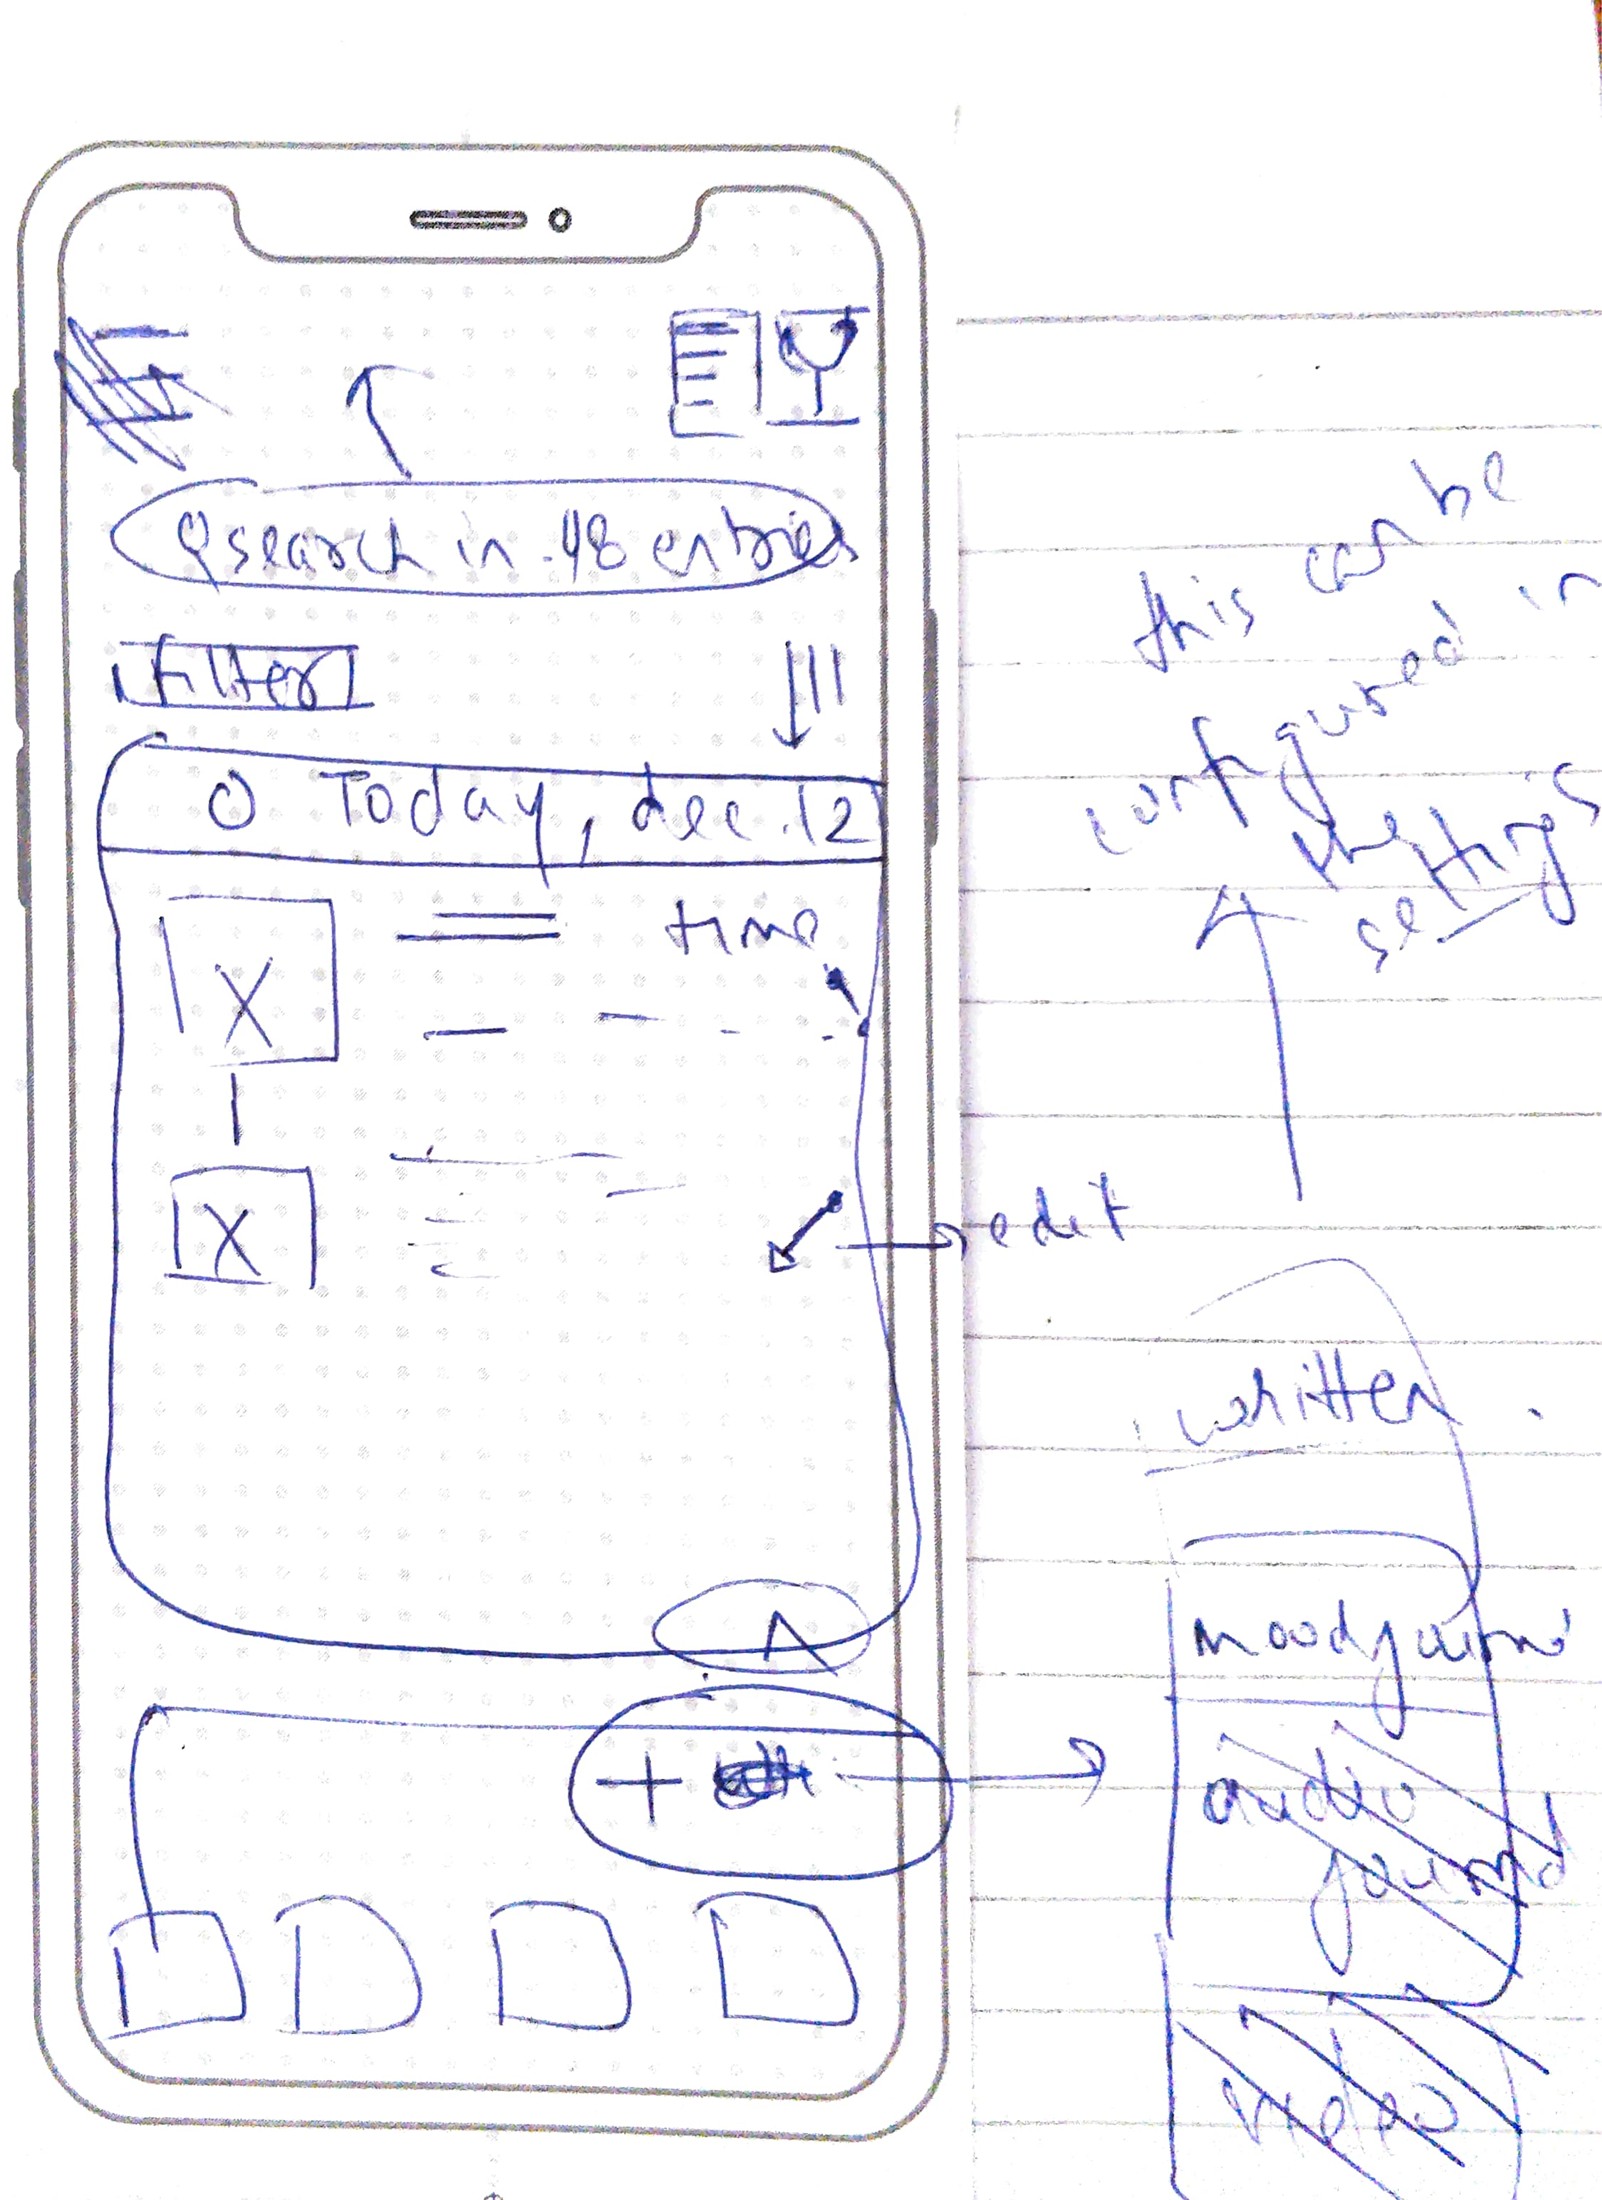 search in 48 entries
Filter
O Today, dec. 12
time
edit
+
this can be
configured in
the
settings
written
mood journ
audio
journal
video